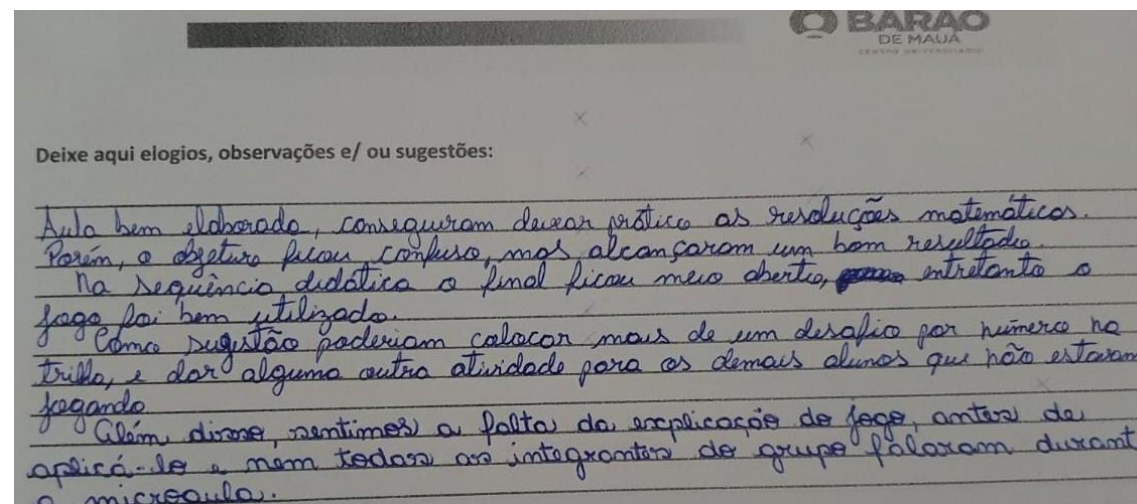 BARÃO
DE MAUÁ
CENTRO UNIVERSITÁRIO
Deixe aqui elogios, observações e/ ou sugestões:
Aula bem elaborada, conseguiram deixar prático as resoluções matemáticas.
Porém, o objetivo ficou confuso, mas alcançaram um bom resultado.
Na sequência didática o final ficou meio aberto, entretanto o
jogo foi bem utilizado.
Como sugestão poderiam colocar mais de um desafio por número na
trilha, e dar alguma outra atividade para os demais alunos que não estavam
jogando
Além disso, sentimos a falta da explicação do jogo, antes de
aplicá-lo e nem todos os integrantes do grupo falaram durant
a microaula.